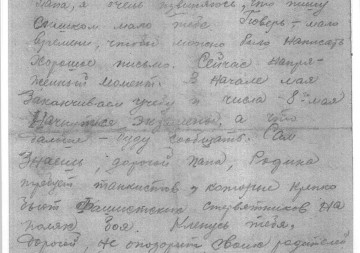 папа, я очень извиняюсь, что пишу
слишком мало тебе поверь – мало
времени, чтобы можно было написать
хорошее письмо. Сейчас напря-
женный момент. В начале мая
Заканчиваем учебу и числа 8го мая
Начнутся экзамены, а что
дальше – буду сообщать. Сам
Знаешь, дорогой папа, Родина
требует танкистов, которые крепко
бьют фашистских стервятников на
полях боя. Клянусь тебе,
дорогой, не опозорить своих родителей